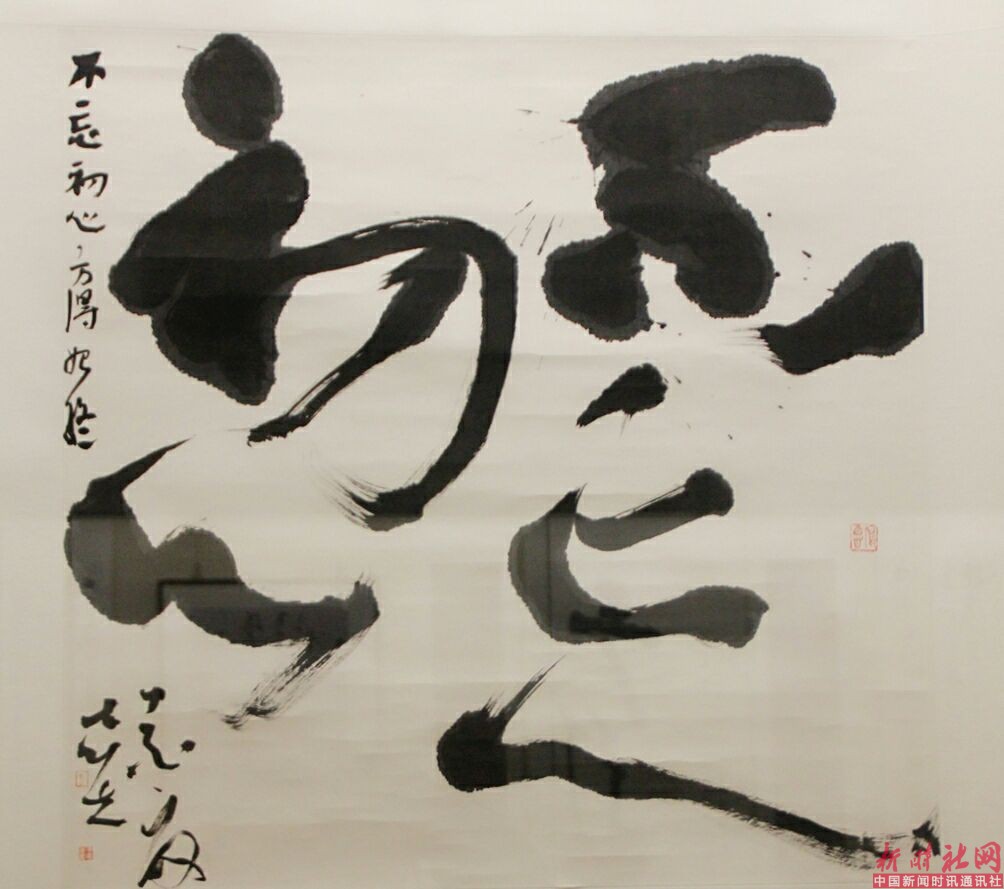 不忘
初心
不忘初心,方得始终
新时社网
中国新闻时讯通讯社